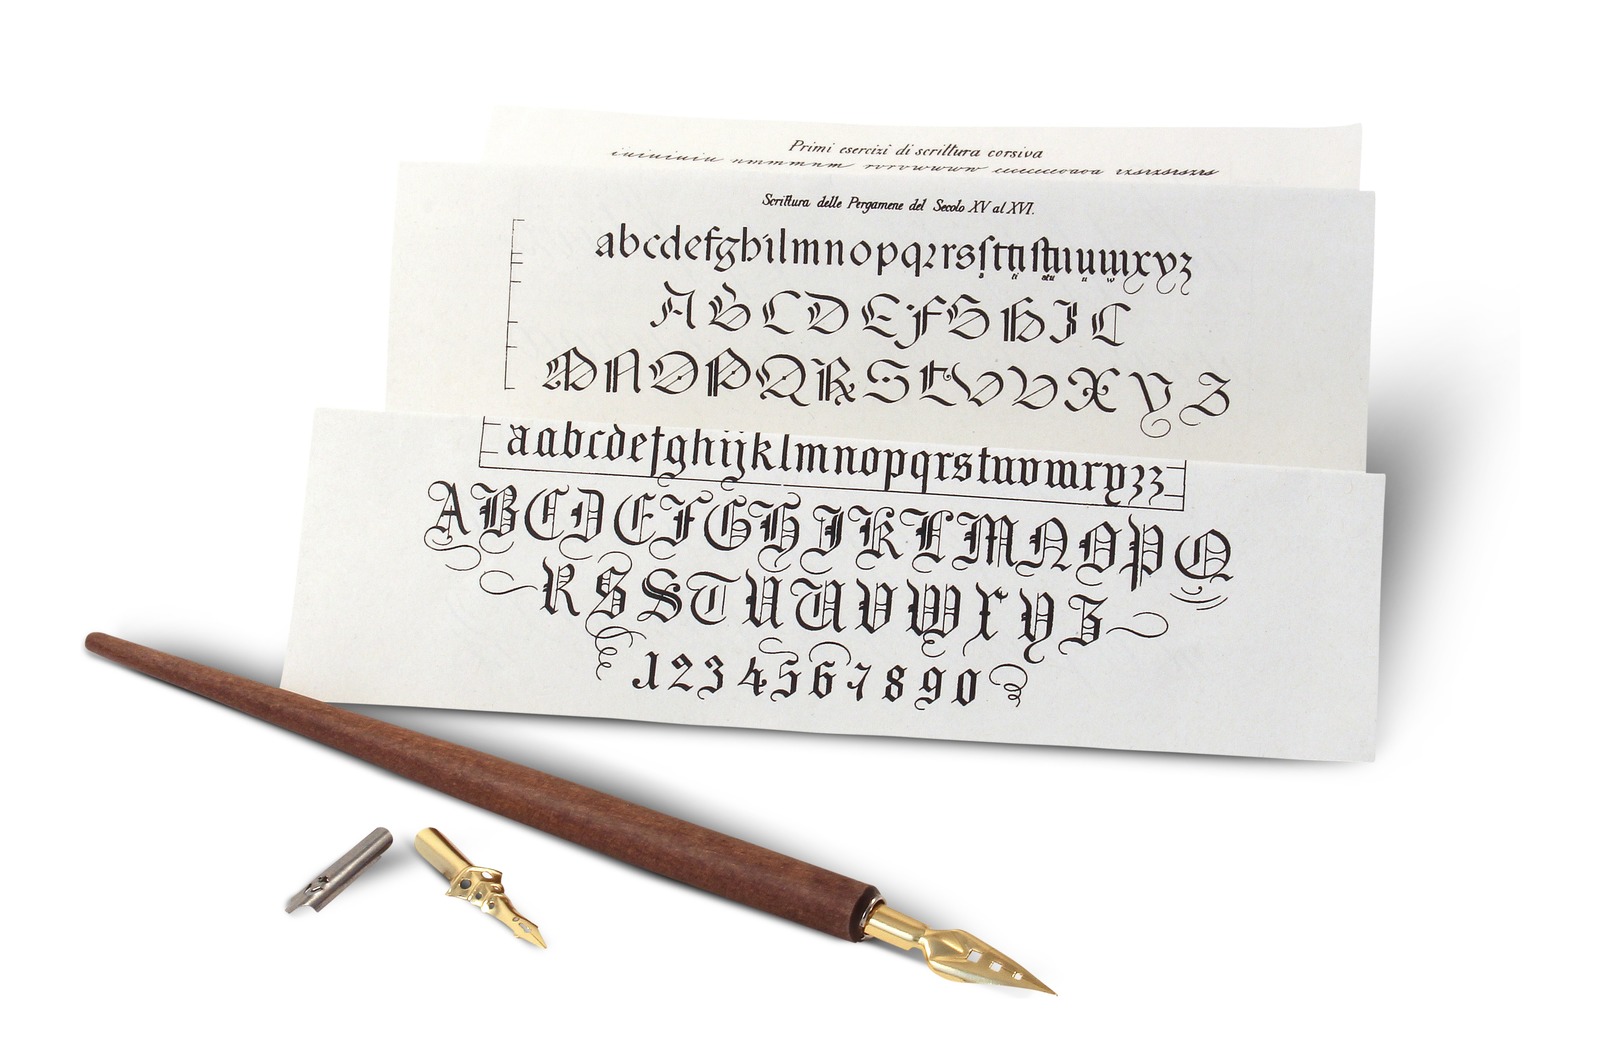 Primi esercizi di scrittura corsiva
Scrittura delle Pergamene del Secolo XV al XVI.
abcdefghilmnopqrsſtuvxyz
ABCDEFGHIL
MNOPQRSTVVXYZ
aabcdefghijklmnopqrstuvwxyzz
ABCDEFGHIJKLMNOPQ
RSSTUUVWXYZ
1234567890